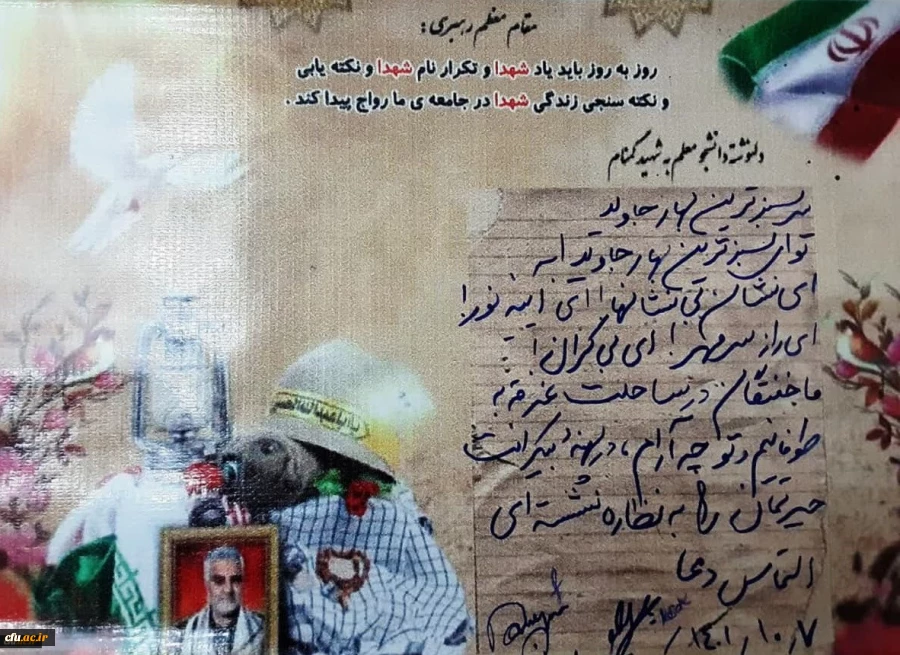 مقام معظم رهبری:
روز به روز باید یاد شهدا و تکرار نام شهدا و نکته یابی
و نکته سنجی زندگی شهدا در جامعه ی ما رواج پیدا کند.
دلنوشته دانشجو معلم به شهید گمنام
سرسبزترین بهار جاوید
تو ای سبزترین بهار جاوید
ای نشان بی نشانها! ای آینه نور!
ای راز سر مهر! ای بی کران!
ما خفتگان در ساحلت غرقه به
طوفانیم و تو چه آرام، در پهنهٔ بیکرانت
حیرتمان را به نظاره نشسته ای
التماس دعا
۱۴۰۱/۱۰/۷
یا اباعبدالله الحسین
cfu.ac.ir